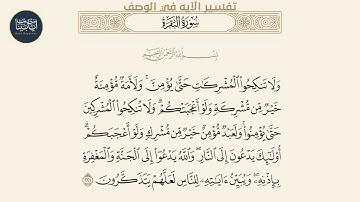 تفسير الآيه في الوصف
سُورَةُ البَقَرَةِ
بِسْمِ اللَّهِ الرَّحْمَٰنِ الرَّحِيمِ
وَلَا تَنكِحُوا۟ ٱلْمُشْرِكَٰتِ حَتَّىٰ يُؤْمِنَّ ۚ وَلَأَمَةٌ مُّؤْمِنَةٌ
خَيْرٌ مِّن مُّشْرِكَةٍ وَلَوْ أَعْجَبَتْكُمْ ۗ وَلَا تُنكِحُوا۟ ٱلْمُشْرِكِينَ
حَتَّىٰ يُؤْمِنُوا۟ ۚ وَلَعَبْدٌ مُّؤْمِنٌ خَيْرٌ مِّن مُّشْرِكٍ وَلَوْ أَعْجَبَكُمْ ۗ
أُو۟لَٰٓئِكَ يَدْعُونَ إِلَى ٱلنَّارِ ۖ وَٱللَّهُ يَدْعُوٓا۟ إِلَى ٱلْجَنَّةِ وَٱلْمَغْفِرَةِ
بِإِذْنِهِۦ ۖ وَيُبَيِّنُ ءَايَٰتِهِۦ لِلنَّاسِ لَعَلَّهُمْ يَتَذَكَّرُونَ ٢٢١